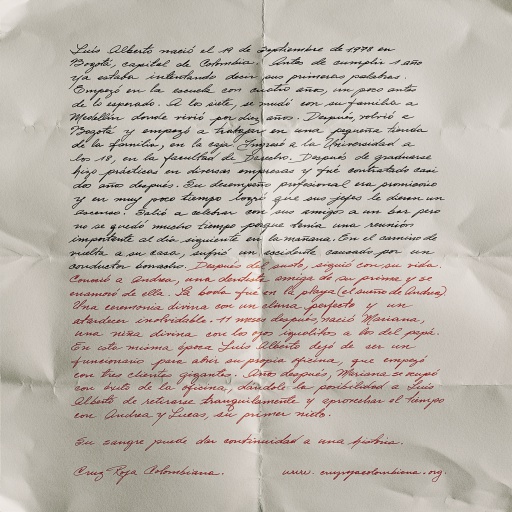 Luis Alberto nació el 19 de Septiembre de 1978 en
Bogotá, capital de Colombia. Antes de cumplir 1 año
ya estaba intentando decir sus primeras palabras.
Empezó en la escuela con cuatro años, un poco antes
de lo esperado. A los siete, se mudó con su familia a
Medellín donde vivió por diez años. Después, volvió a
Bogotá y empezó a trabajar en una pequeña tienda
de la familia, en la caja. Ingresó a la Universidad a
los 18, en la facultad de Derecho. Después de graduarse
hizo prácticas en diversas empresas y fué contratado casi
dos años después. Su desempeño profesional era promisorio
y en muy poco tiempo logró que sus jefes le dieran un
ascenso. Salió a celebrar con sus amigos a un bar pero
no se quedó mucho tiempo porque tenía una reunión
importante al día siguiente en la mañana. En el camino de
vuelta a su casa, sufrió un accidente causado por un
conductor borracho. Después del susto, siguió con su vida.
Conoció a Andrea, una dentista amiga de su prima y se
enamoró de ella. La boda fué en la playa (el sueño de Andrea)
Una ceremonia divina con un clima perfecto y un
atardecer inolvidable. 11 meses después, nació Mariana,
una niña divina, con los ojos igualitos a los del papá.
En esta misma época Luis Alberto dejó de ser un
funcionario para abrir su propia oficina, que empezó
con tres clientes gigantes. Años después, Mariana se ocupó
con parte de la oficina, dándole la posibilidad a Luis
Alberto de retirarse tranquilamente y aprovechar el tiempo
con Andrea y Lucas, su primer nieto.
Su sangre puede dar continuidad a una historia.
Cruz Roja Colombiana. www.cruzrojacolombiana.org.